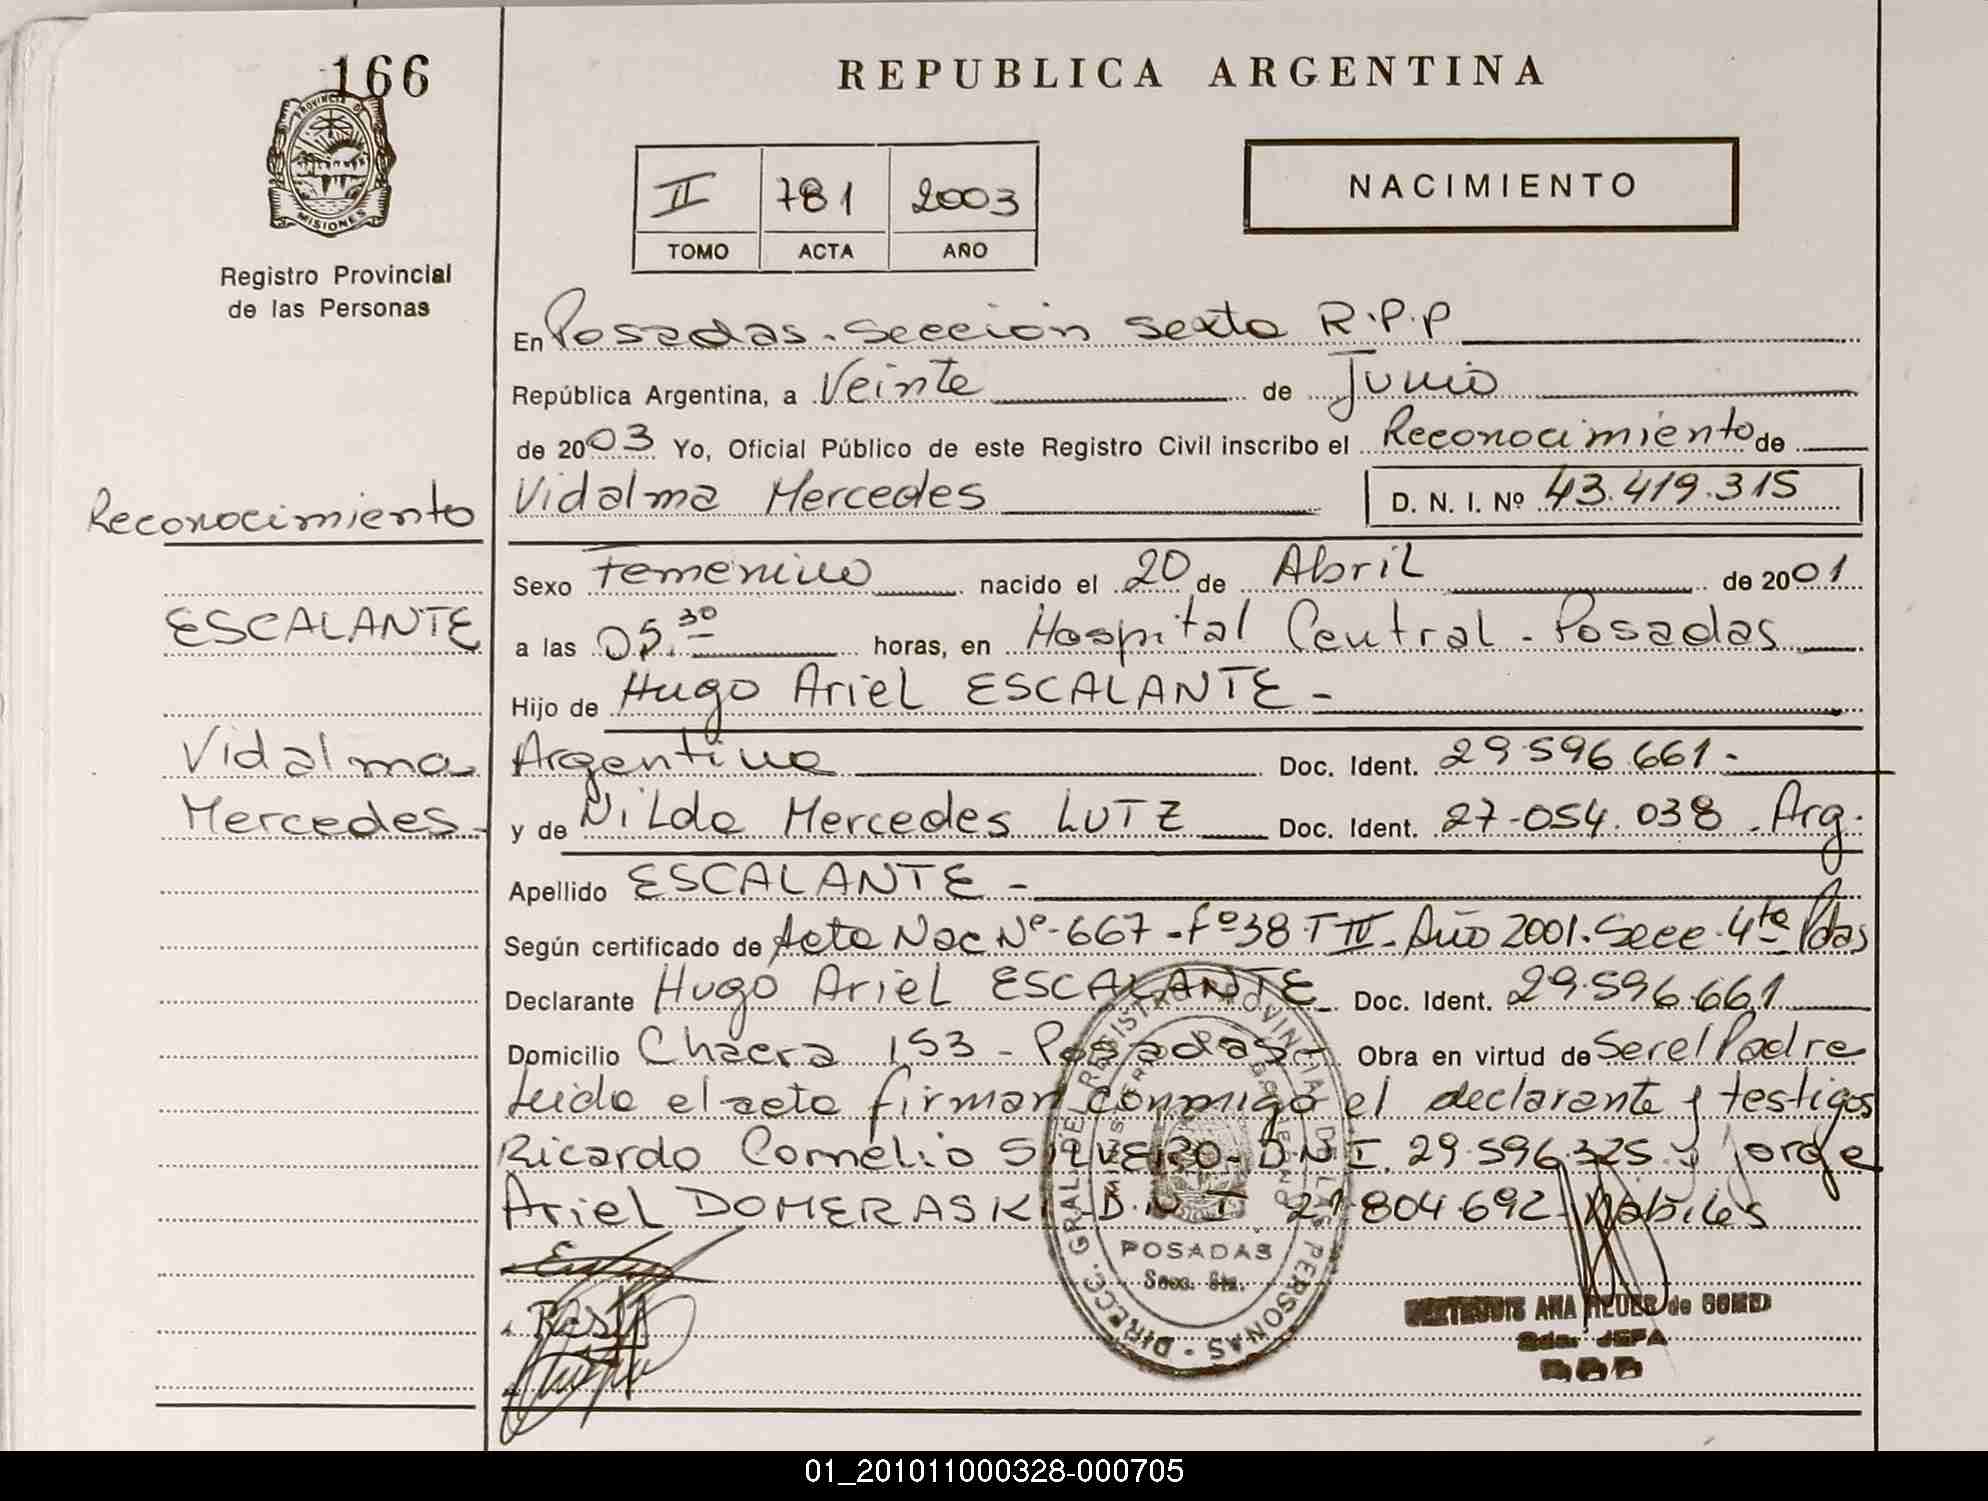 166
REPUBLICA ARGENTINA
PROVINCIA DE
MISIONES
Registro Provincial
de las Personas
II 781 2003
TOMO ACTA AÑO
NACIMIENTO
En Posadas. Sección Sexta R.P.P
República Argentina, a Veinte de Junio
de 2003 Yo, Oficial Público de este Registro Civil inscribo el Reconocimiento de
Vidalma Mercedes D. N. I. Nº 43.419.315
Reconocimiento
Sexo Femenino nacido el 20 de Abril de 2001
ESCALANTE
a las 05.30 horas, en Hospital Central - Posadas
Hijo de Hugo Ariel ESCALANTE -
Vidalma
Mercedes-
Argentina Doc. Ident. 29.596.661-
y de Nilda Mercedes LUTZ Doc. Ident. 27.054.038. Arg.
Apellido ESCALANTE -
Según certificado de Acta Nac Nº-667-Fº38-T III-Año 2001. Secc. 4ta Pdas
Declarante Hugo Ariel ESCALANTE Doc. Ident. 29.596.661
Domicilio Chacra 153 - Posadas- Obra en virtud de Ser el Padre
Leida el acta firman conmigo el declarante y testigos
Ricardo Cornelio SILVERO-D.N.I. 29.596.325 y Jorge
Ariel DOMERASKI-D.N.I. 21.804.692- Hábiles
DIRECC. GRAL. DE REGISTRO PROVINCIAL DE LAS PERSONAS
POSADAS
Secc. 6ta.
ANA de
Sda. JEFA
01_201011000328-000705